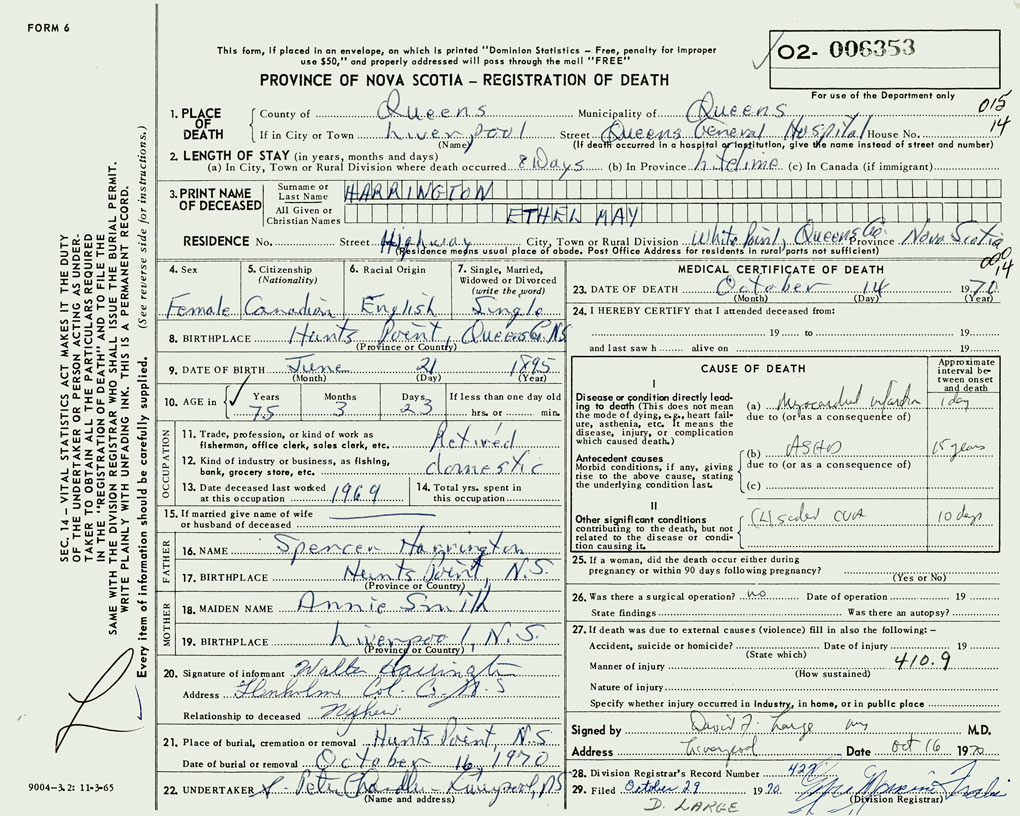 FORM 6
This form, if placed in an envelope, on which is printed "Dominion Statistics – Free, penalty for improper
use $50," and properly addressed will pass through the mail "FREE"
PROVINCE OF NOVA SCOTIA – REGISTRATION OF DEATH
02- 006353
For use of the Department only
015
14
1. PLACE OF DEATH
County of Queens Municipality of Queens
If in City or Town Liverpool Street Queens General Hospital House No.
(Name) (If death occurred in a hospital or institution, give the name instead of street and number)
2. LENGTH OF STAY (in years, months and days)
(a) In City, Town or Rural Division where death occurred 8 Days (b) In Province lifetime (c) In Canada (if immigrant)
3. PRINT NAME OF DECEASED
Surname or Last Name HARRINGTON
All Given or Christian Names ETHEL MAY
RESIDENCE No. Street Highway City, Town or Rural Division White Point, Queens Co. Province Nova Scotia
(Residence means usual place of abode. Post Office Address for residents in rural parts not sufficient)
000
14
4. Sex Female
5. Citizenship (Nationality) Canadian
6. Racial Origin English
7. Single, Married, Widowed or Divorced (write the word) Single
8. BIRTHPLACE Hunts Point, Queens Co. N.S.
(Province or Country)
9. DATE OF BIRTH June 21 1895
(Month) (Day) (Year)
10. AGE in Years 75 Months 3 Days 23 If less than one day old hrs. or min.
OCCUPATION
11. Trade, profession, or kind of work as fisherman, office clerk, sales clerk, etc. Retired
12. Kind of industry or business, as fishing, bank, grocery store, etc. domestic
13. Date deceased last worked at this occupation 1969
14. Total yrs. spent in this occupation
15. If married give name of wife or husband of deceased
FATHER
16. NAME Spencer Harrington
17. BIRTHPLACE Hunts Point, N.S.
(Province or Country)
MOTHER
18. MAIDEN NAME Annie Smith
19. BIRTHPLACE Liverpool, N.S.
(Province or Country)
20. Signature of informant Walter Harrington
Address Glenholme Col. Co. N.S
Relationship to deceased Nephew
21. Place of burial, cremation or removal Hunts Point, N.S
Date of burial or removal October 16, 1970
22. UNDERTAKER Peter Chandler - Liverpool, NS
(Name and address)
MEDICAL CERTIFICATE OF DEATH
23. DATE OF DEATH October 14 1970
(Month) (Day) (Year)
24. I HEREBY CERTIFY that I attended deceased from:
19 to 19
and last saw h alive on 19
CAUSE OF DEATH
Approximate interval between onset and death
I
Disease or condition directly leading to death (This does not mean the mode of dying, e.g., heart failure, asthenia, etc. It means the disease, injury, or complication which caused death.)
(a) Myocardial infarction 1 day
due to (or as a consequence of)
Antecedent causes
Morbid conditions, if any, giving rise to the above cause, stating the underlying condition last.
(b) ASHD 15 years
due to (or as a consequence of)
(c)
II
Other significant conditions contributing to the death, but not related to the disease or condition causing it.
(L) sided CVA 10 days
25. If a woman, did the death occur either during pregnancy or within 90 days following pregnancy?
(Yes or No)
26. Was there a surgical operation? no Date of operation 19
State findings Was there an autopsy?
27. If death was due to external causes (violence) fill in also the following: –
Accident, suicide or homicide? Date of injury 19
(State which)
410.9
Manner of injury
(How sustained)
Nature of injury
Specify whether injury occurred in industry, in home, or in public place
Signed by David F. Large M.D.
Address Liverpool Date Oct 16 1970
28. Division Registrar's Record Number
29. Filed October 29 1970
(Division Registrar)
D. LARGE
SEC. 14 – VITAL STATISTICS ACT MAKES IT THE DUTY
OF THE UNDERTAKER OR PERSON ACTING AS UNDER-
TAKER TO OBTAIN ALL THE PARTICULARS REQUIRED
IN THE "REGISTRATION OF DEATH" AND TO FILE THE
SAME WITH THE DIVISION REGISTRAR WHO SHALL ISSUE THE BURIAL PERMIT.
WRITE PLAINLY WITH UNFADING INK. THIS IS A PERMANENT RECORD.
Every item of information should be carefully supplied. (See reverse side for instructions.)
9004-3.2: 11-3-65